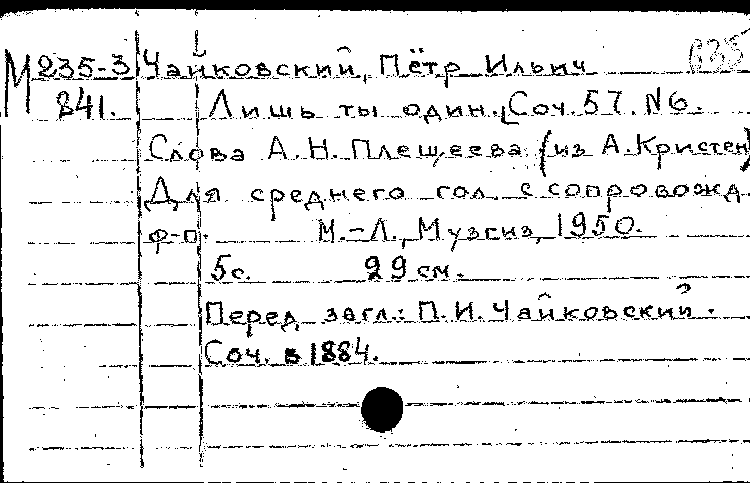 М 235-3 Чайковский, Пётр Ильич
841. Лишь ты один. Соч. 57. N6.
Слова А.Н. Плещеева (из А. Кристен)
Для среднего гол. с сопровожд.
ф-п. М.-Л., Музгиз, 1950.
5с. 29 см.
Перед загл.: П.И. Чайковский.
Соч. в 1884.